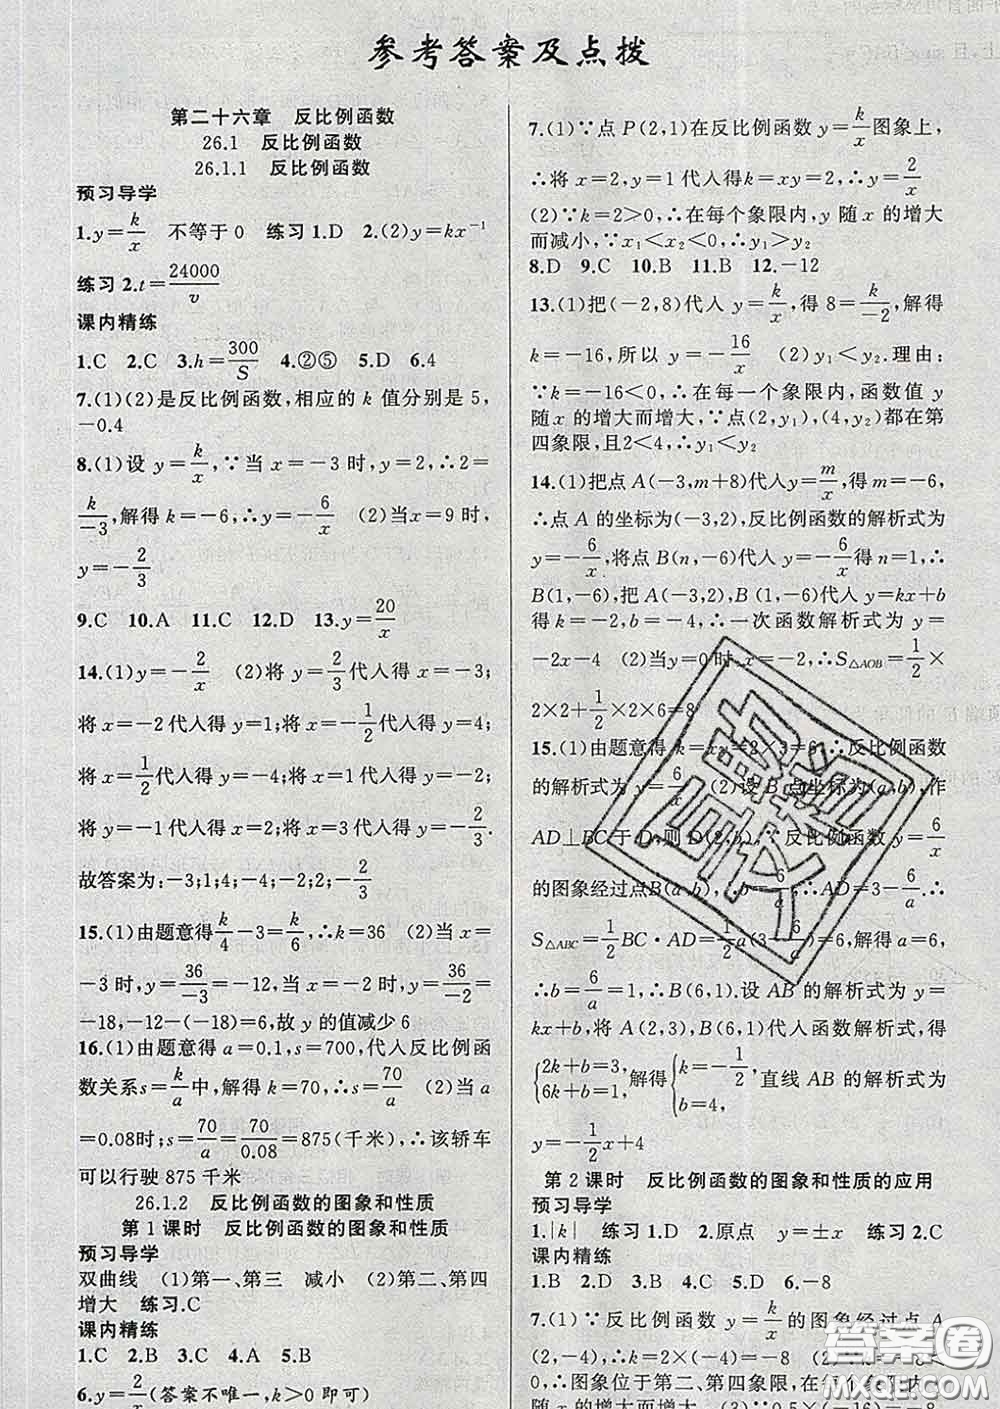 参考答案及点拨
第二十六章 反比例函数
26.1 反比例函数
26.1.1 反比例函数
预习导学
1.y=k/x 不等于0 练习1.D 2.(2)y=kx⁻¹
练习2.t=24000/v
课内精练
1.C 2.C 3.h=300/S 4.②⑤ 5.D 6.4
7.(1)(2)是反比例函数,相应的k值分别是5,
-0.4
8.(1)设y=k/x,∵当x=-3时,y=2,∴2=
k/-3,解得k=-6,∴y=-6/x (2)当x=9时,
y=-2/3
9.C 10.A 11.C 12.D 13.y=20/x
14.(1)y=-2/x (2)将y=2/3代入得x=-3;
将x=-2代入得y=1;将x=-1/2代入得y=4;
将x=1/2代入得y=-4;将x=1代入得y=-2;
将y=-1代入得x=2;将x=3代入得y=-2/3.
故答案为:-3;1;4;-4;-2;2;-2/3
15.(1)由题意得k/4-3=k/6,∴k=36 (2)当x=
-3时,y=36/-3=-12,当x=-2时,y=36/-2=
-18,-12-(-18)=6,故y的值减少6
16.(1)由题意得a=0.1,s=700,代入反比例函
数关系s=k/a中,解得k=70,∴s=70/a (2)当a
=0.08时;s=70/a=70/0.08=875(千米),∴该轿车
可以行驶875千米
26.1.2 反比例函数的图象和性质
第1课时 反比例函数的图象和性质
预习导学
双曲线 (1)第一、第三 减小 (2)第二、第四
增大 练习.C
课内精练
1.C 2.B 3.C 4.A 5.B
6.y=2/x(答案不唯一,k>0即可)
7.(1)∵点P(2,1)在反比例函数y=k/x图象上,
∴将x=2,y=1代入得k=xy=2,∴y=2/x
(2)∵k=2>0,∴在每个象限内,y随x的增大
而减小,∵x₁<x₂<0,∴y₁>y₂
8.D 9.C 10.B 11.B 12.-12
13.(1)把(-2,8)代入y=k/x,得8=k/-2,解得
k=-16,所以y=-16/x (2)y₁<y₂.理由:
∵k=-16<0,∴在每一个象限内,函数值y
随x的增大而增大,∵点(2,y₁),(4,y₂)都在第
四象限,且2<4,∴y₁<y₂
14.(1)把点A(-3,m+8)代入y=m/x,得m=-6,
∴点A的坐标为(-3,2),反比例函数的解析式为
y=-6/x,将点B(n,-6)代入y=-6/x得n=1,∴
B(1,-6),把A(-3,2),B(1,-6)代入y=kx+b
得k=-2,b=-4,∴一次函数解析式为y=
-2x-4 (2)当y=0时,x=-2,∴S△AOB=1/2×
2×2+1/2×2×6=8
15.(1)由题意得k=xy=2×3=6,∴反比例函数
的解析式为y=6/x (2)设B点坐标为(a,b),作
AD⊥BC于D,则D(2,b),∵反比例函数y=6/x
的图象经过点B(a,b),∴b=6/a,∴AD=3-6/a.∴
S△ABC=1/2BC·AD=1/2a(3-6/a)=6,解得a=6,
∴b=6/a=1,∴B(6,1).设AB的解析式为y=
kx+b,将A(2,3),B(6,1)代入函数解析式,得
{2k+b=3, 6k+b=1,解得{k=-1/2, b=4,直线AB的解析式为
y=-1/2x+4
第2课时 反比例函数的图象和性质的应用
预习导学
1.|k| 练习1.D 2.原点 y=±x 练习2.C
课内精练
1.B 2.D 3.B 4.D 5.D 6.-8
7.(1)∵反比例函数y=k/x的图象经过点A
(2,-4),∴k=2×(-4)=-8 (2)∵k=-8
<0,∴图象位于第二、第四象限,在每个象限内
答案圈
MXQE.COM